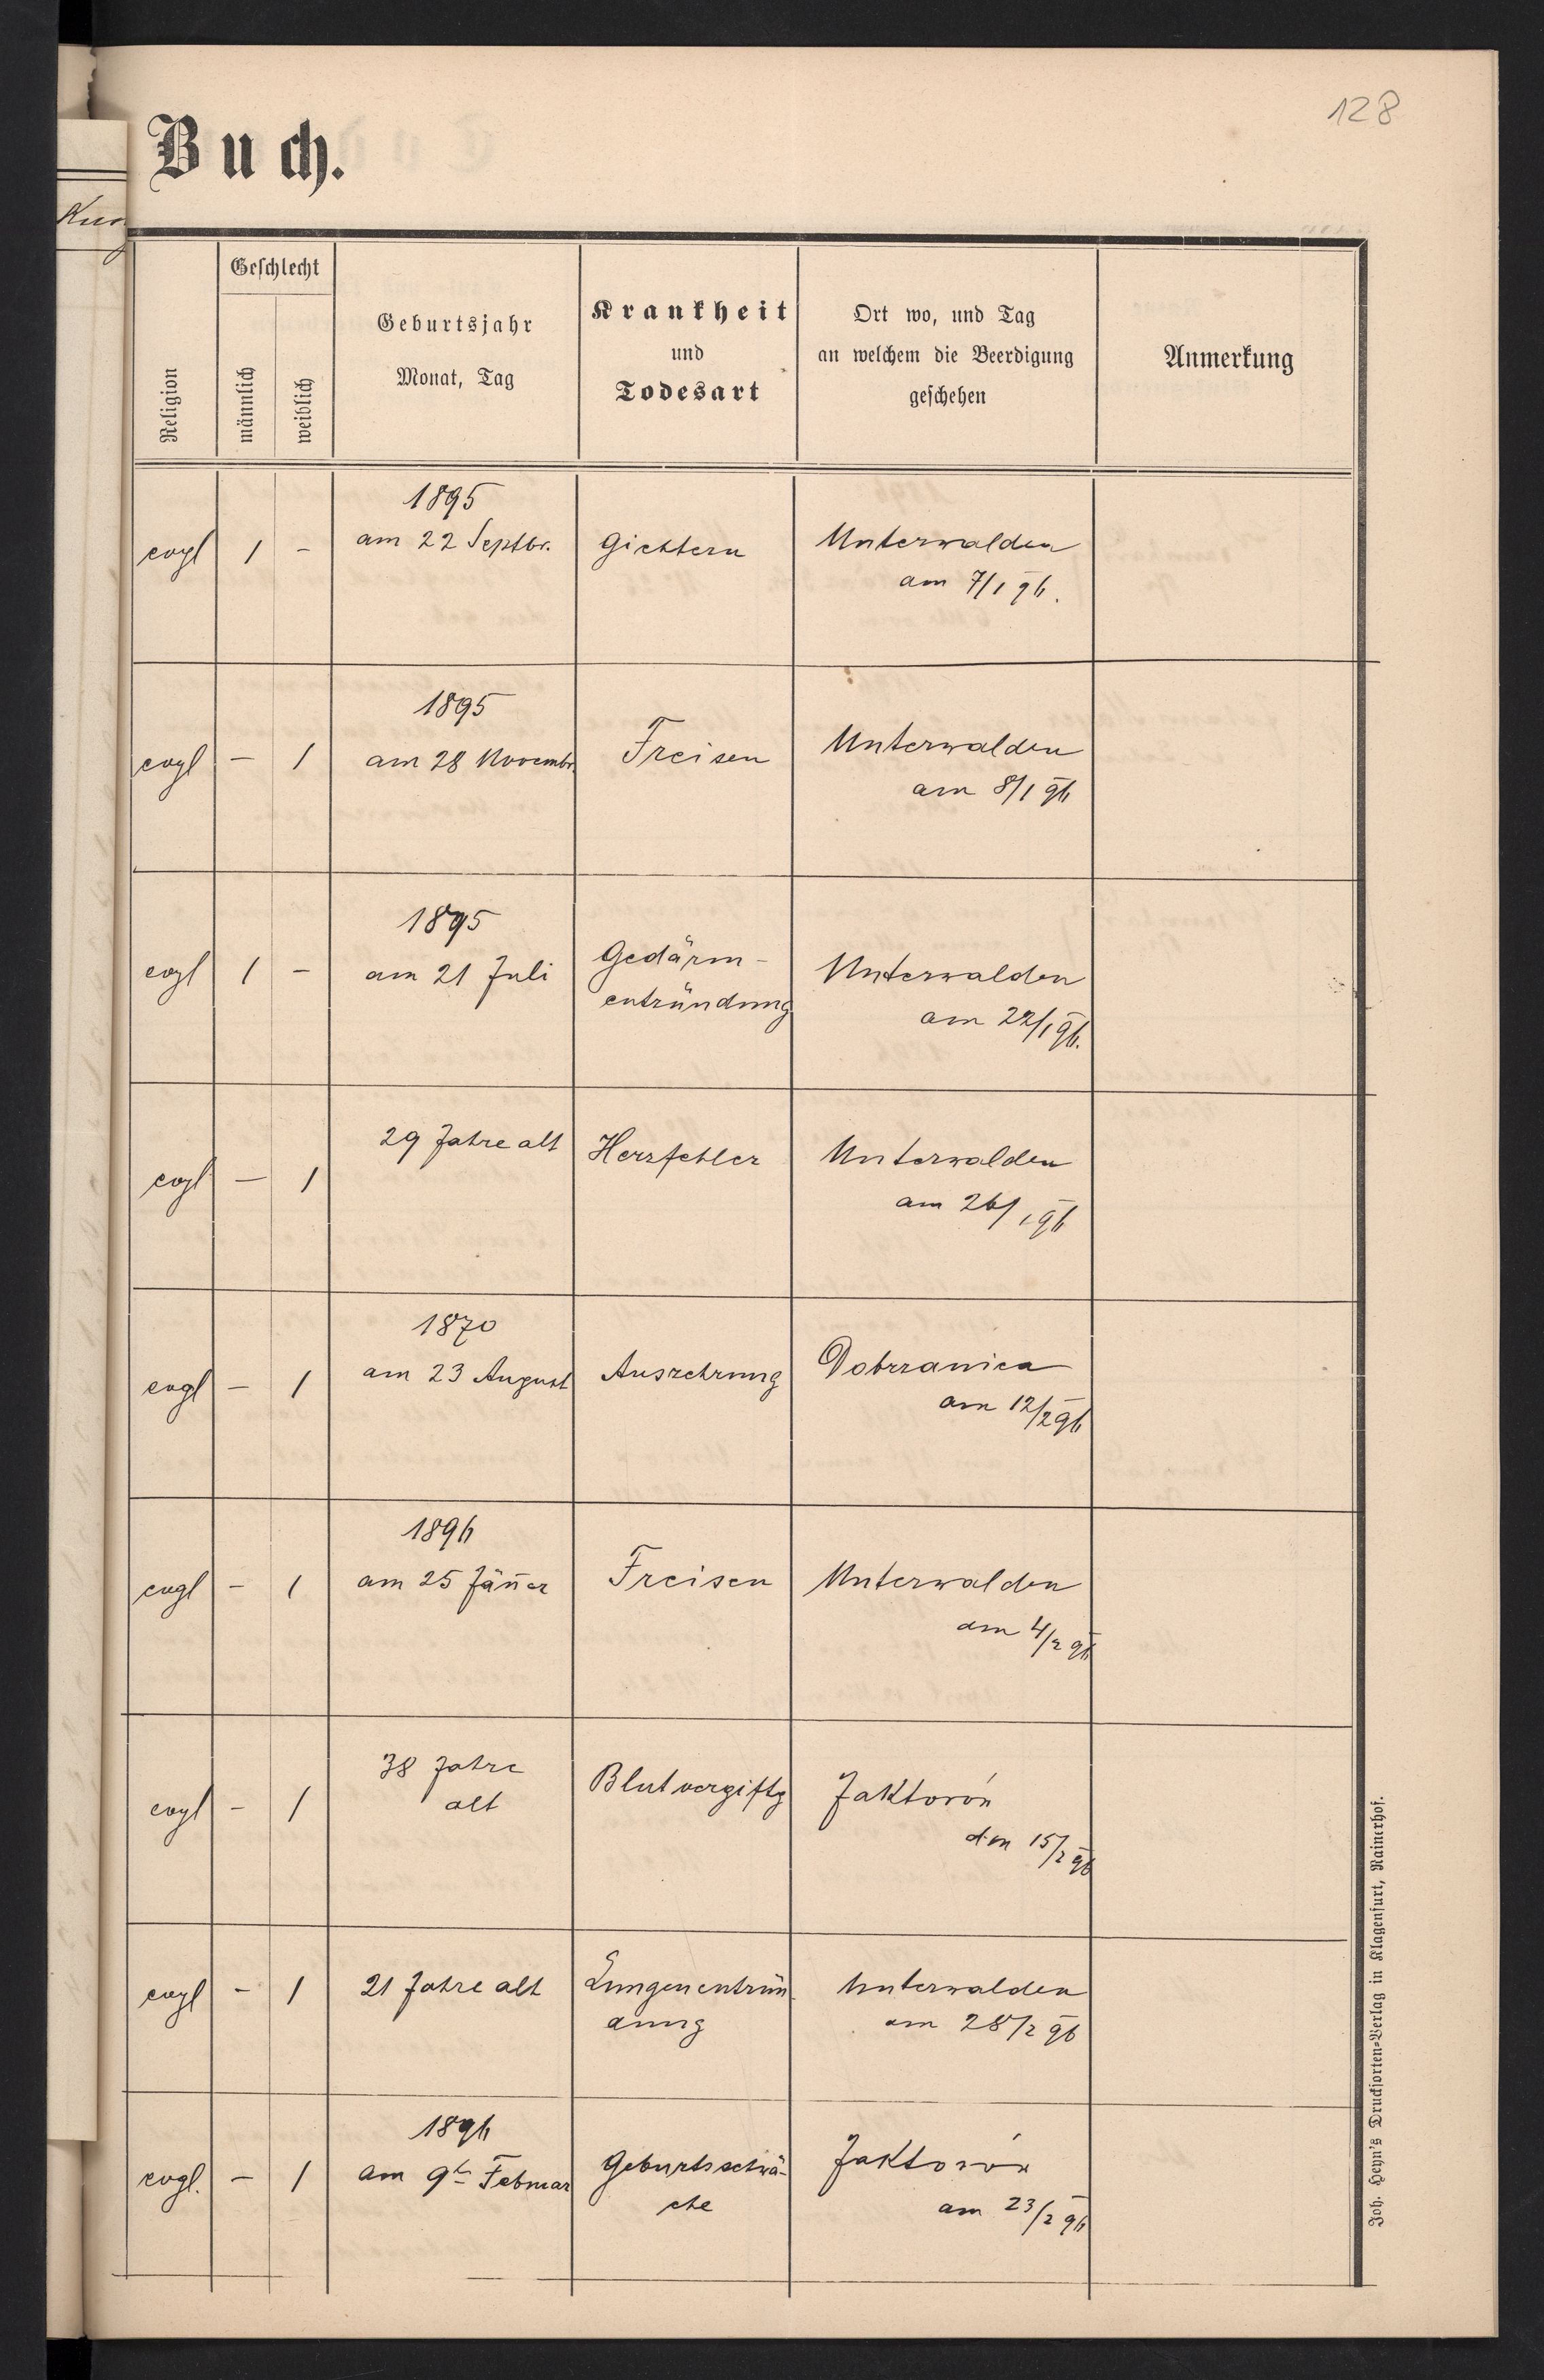 128
Buch.
Kun
Religion
Geschlecht
männlich
weiblich
Geburtsjahr
Monat, Tag
Krankheit
und
Todesart
Ort wo, und Tag
an welchem die Beerdigung
geschehen
Anmerkung
evgl 1 -
1895
am 22 Septbr.
Gichtern
Unterwalden
am 7/1 96.
evgl - 1
1895
am 28 Novembr.
Freisen
Unterwalden
am 8/1 96
evgl 1 -
1895
am 21 Juli
Gedärm-
entzündung
Unterwalden
am 22/1 96.
evgl - 1
29 Jahre alt
Herzfehler
Unterwalden
am 26/1 96
evgl - 1
1870
am 23 August
Auszehrung
Dobrzanica
am 12/2 96
evgl - 1
1896
am 25 Jän̄er
Freisen
Unterwalden
am 4/2 96
evgl - 1
38 Jahre
alt
Blutvergiftg
Jaktorów
den 15/2 96
evgl - 1
21 Jahre alt
Lungenentzün-
dung
Unterwalden
am 28/2 96
evgl. - 1
1896
am 9t Februar
Geburtsschwä-
che
Jaktorów
am 23/2 96
Joh. Heyn's Drucksorten-Verlag in Klagenfurt, Rainerhof.